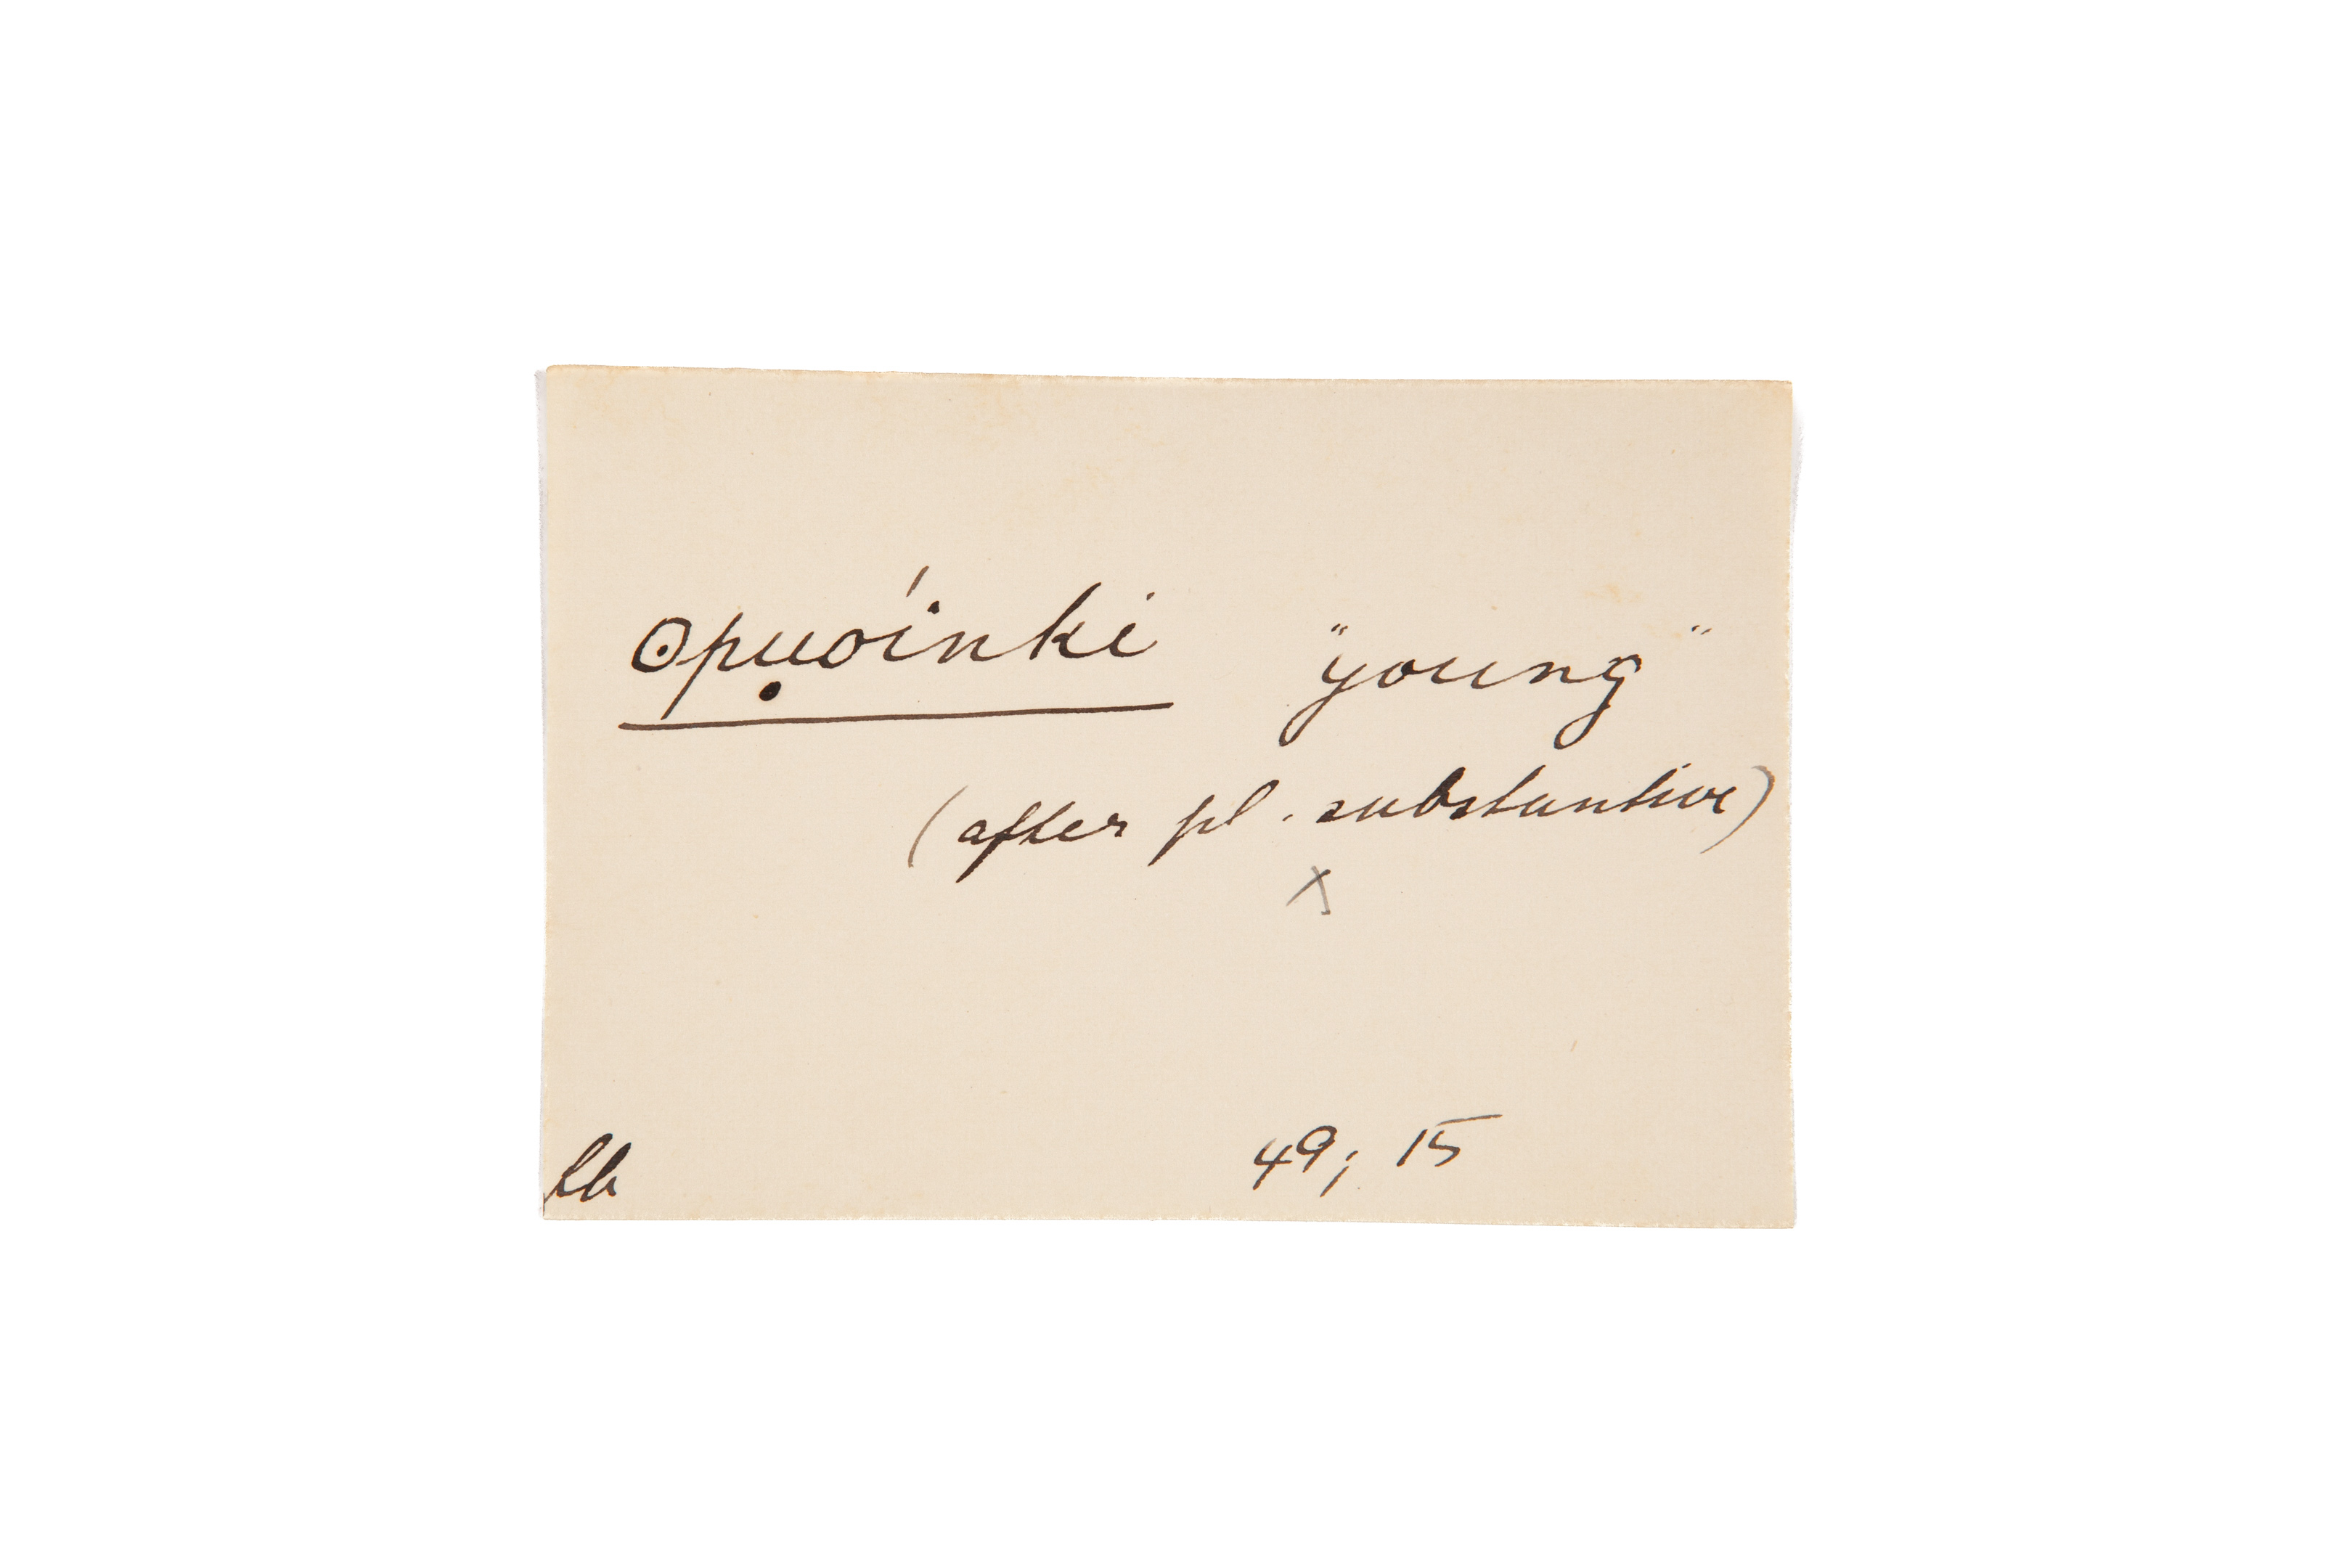 ʘpụoínki "young"
(after pl. substantive)
x
49; 15